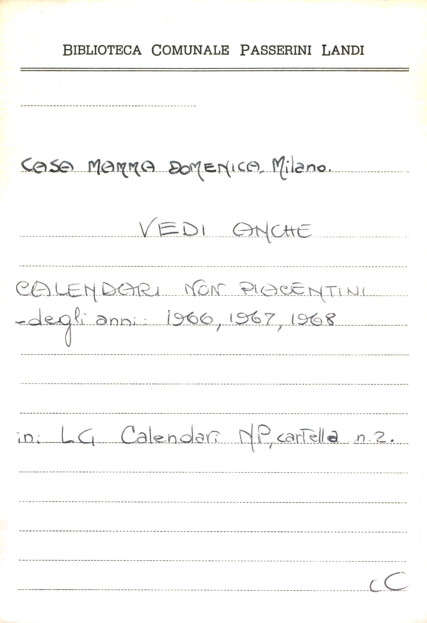 BIBLIOTECA COMUNALE PASSERINI LANDI
CASA MAMMA DOMENICA. Milano.
VEDI ANCHE
CALENDARI NON PIACENTINI
-degli anni: 1966, 1967, 1968
in: LG Calendari NP, cartella n. 2.
cC